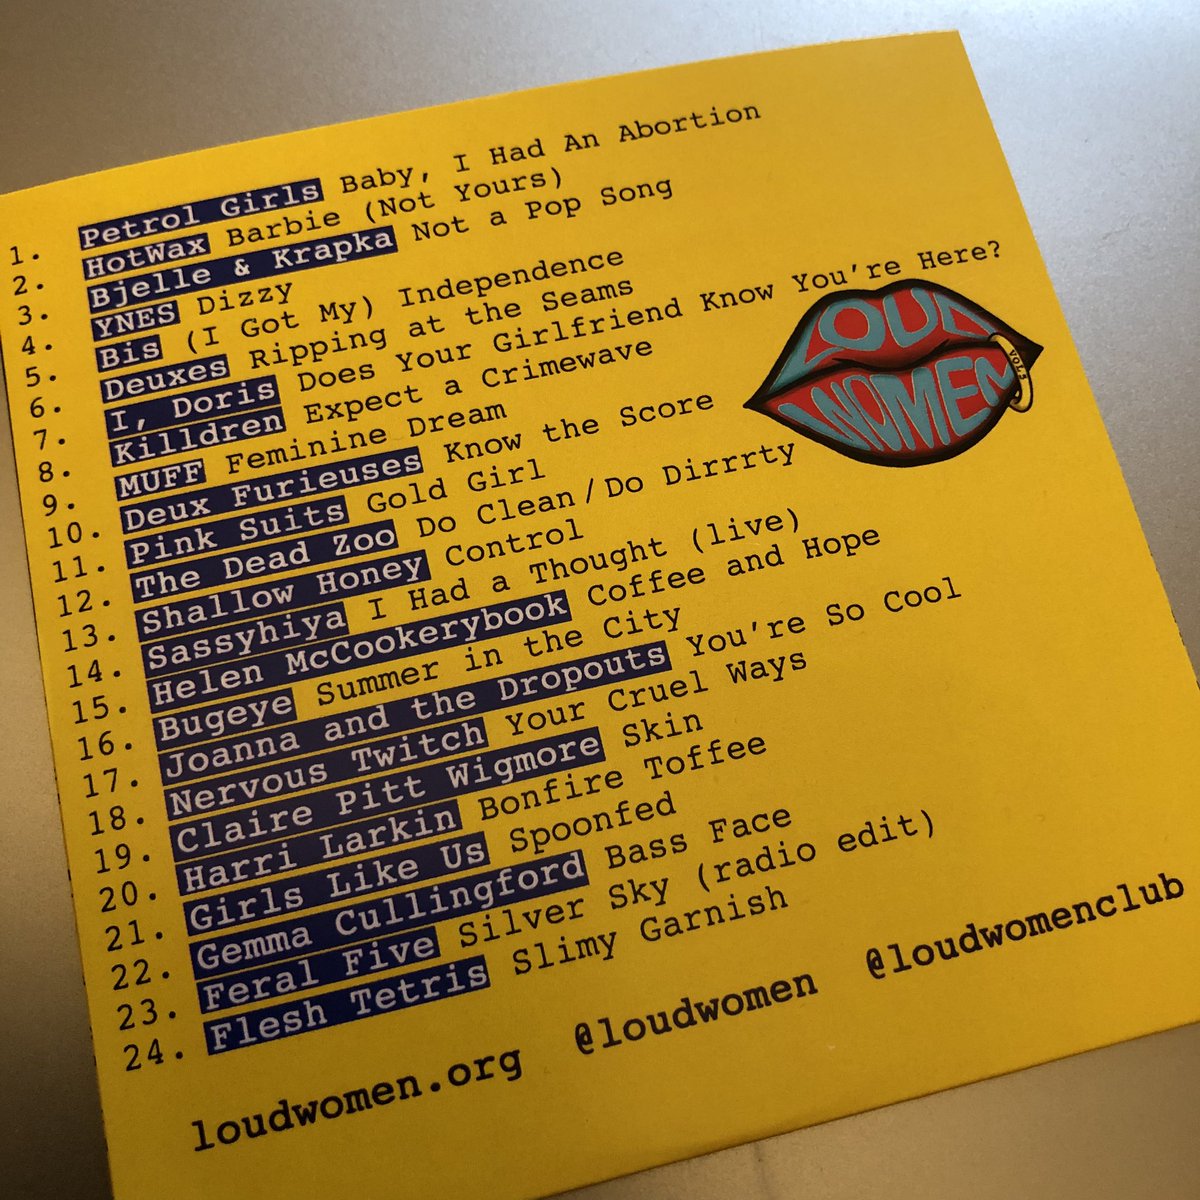 1. Petrol Girls Baby, I Had An Abortion
2. HotWax Barbie (Not Yours)
3. Bjelle & Krapka Not a Pop Song
4. YNES Dizzy
5. Bis (I Got My) Independence
6. Deuxes Ripping at the Seams
7. I, Doris Does Your Girlfriend Know You're Here?
8. Killdren Expect a Crimewave
9. MUFF Feminine Dream
10. Deux Furieuses Know the Score
11. Pink Suits Gold Girl
12. The Dead Zoo Do Clean/Do Dirrrty
13. Shallow Honey Control
14. Sassyhiya I Had a Thought (live)
15. Helen McCookerybook Coffee and Hope
16. Bugeye Summer in the City
17. Joanna and the Dropouts You're So Cool
18. Nervous Twitch Your Cruel Ways
19. Claire Pitt Wigmore Skin
20. Harri Larkin Bonfire Toffee
21. Girls Like Us Spoonfed
22. Gemma Cullingford Bass Face
23. Feral Five Silver Sky (radio edit)
24. Flesh Tetris Slimy Garnish
LOUD
WOMEN
loudwomen.org @loudwomen @loudwomenclub